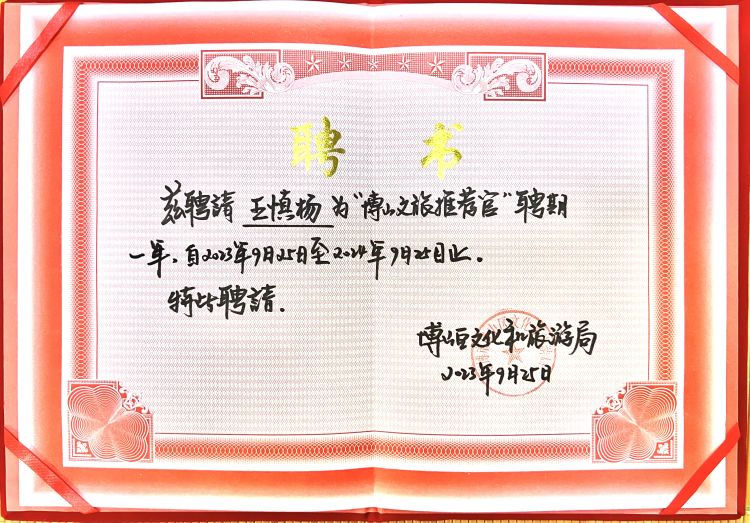 聘书
兹聘請 王慎杨 为“博山文旅推荐官”聘期
一年，自2023年9月25日至2024年9月25日止。
特此聘請.
博山区文化和旅游局
2023年9月25日